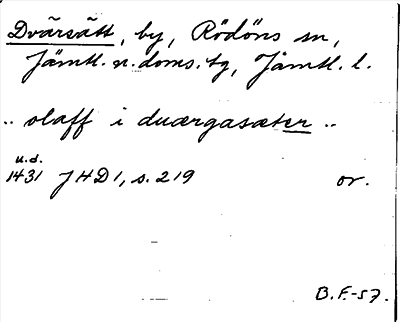 Dvärsätt, by, Rödöns sn,
Jämtl. n. doms. tg, Jämtl. l.
.. olaff i duærgasæter ..
u.d.
1431 JHD1, s. 219 or.
B.F.-57.